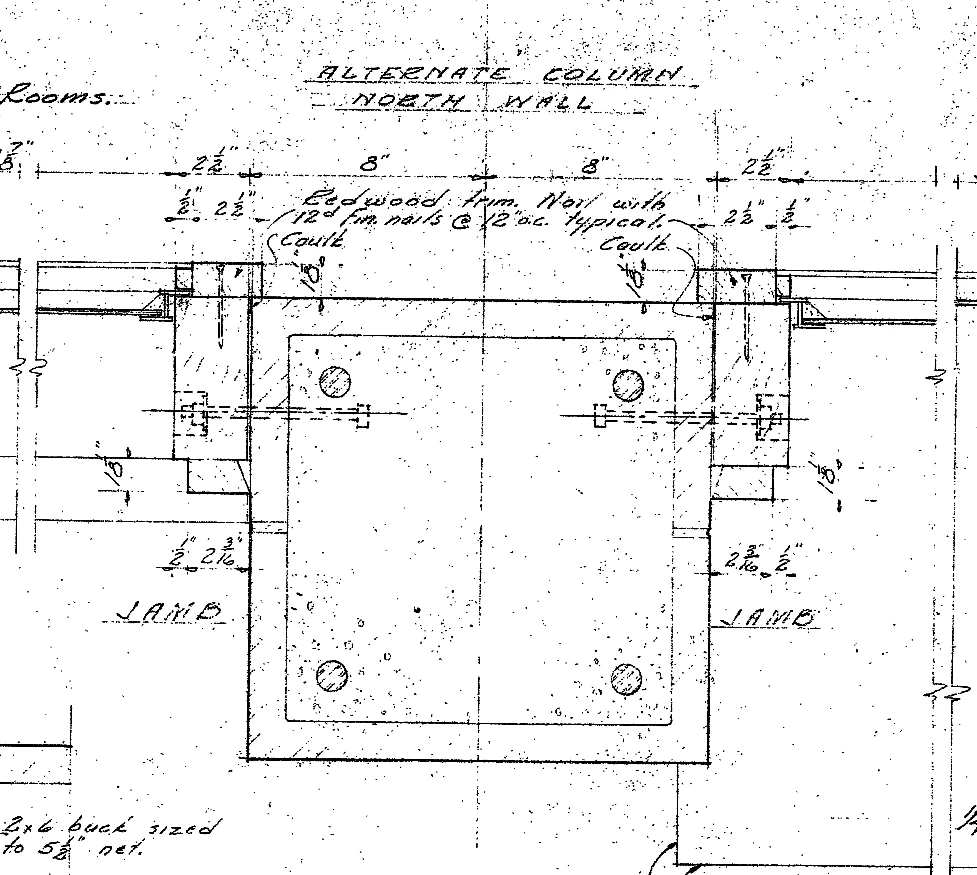 ALTERNATE COLUMN
NORTH WALL
Rooms.
7/8"
2 1/2" 8" 8" 2 1/2"
1/2" 2 1/2" 2 1/2" 1/2"
Redwood trim. Nail with
12d fin. nails @ 12"oc. typical.
Caulk Caulk
1 1/8" 1 1/8"
1 1/8" 1 1/8"
1/2" 2 3/16" 2 3/16" 1/2"
JAMB JAMB
2x6 buck sized
to 5 1/2" net.